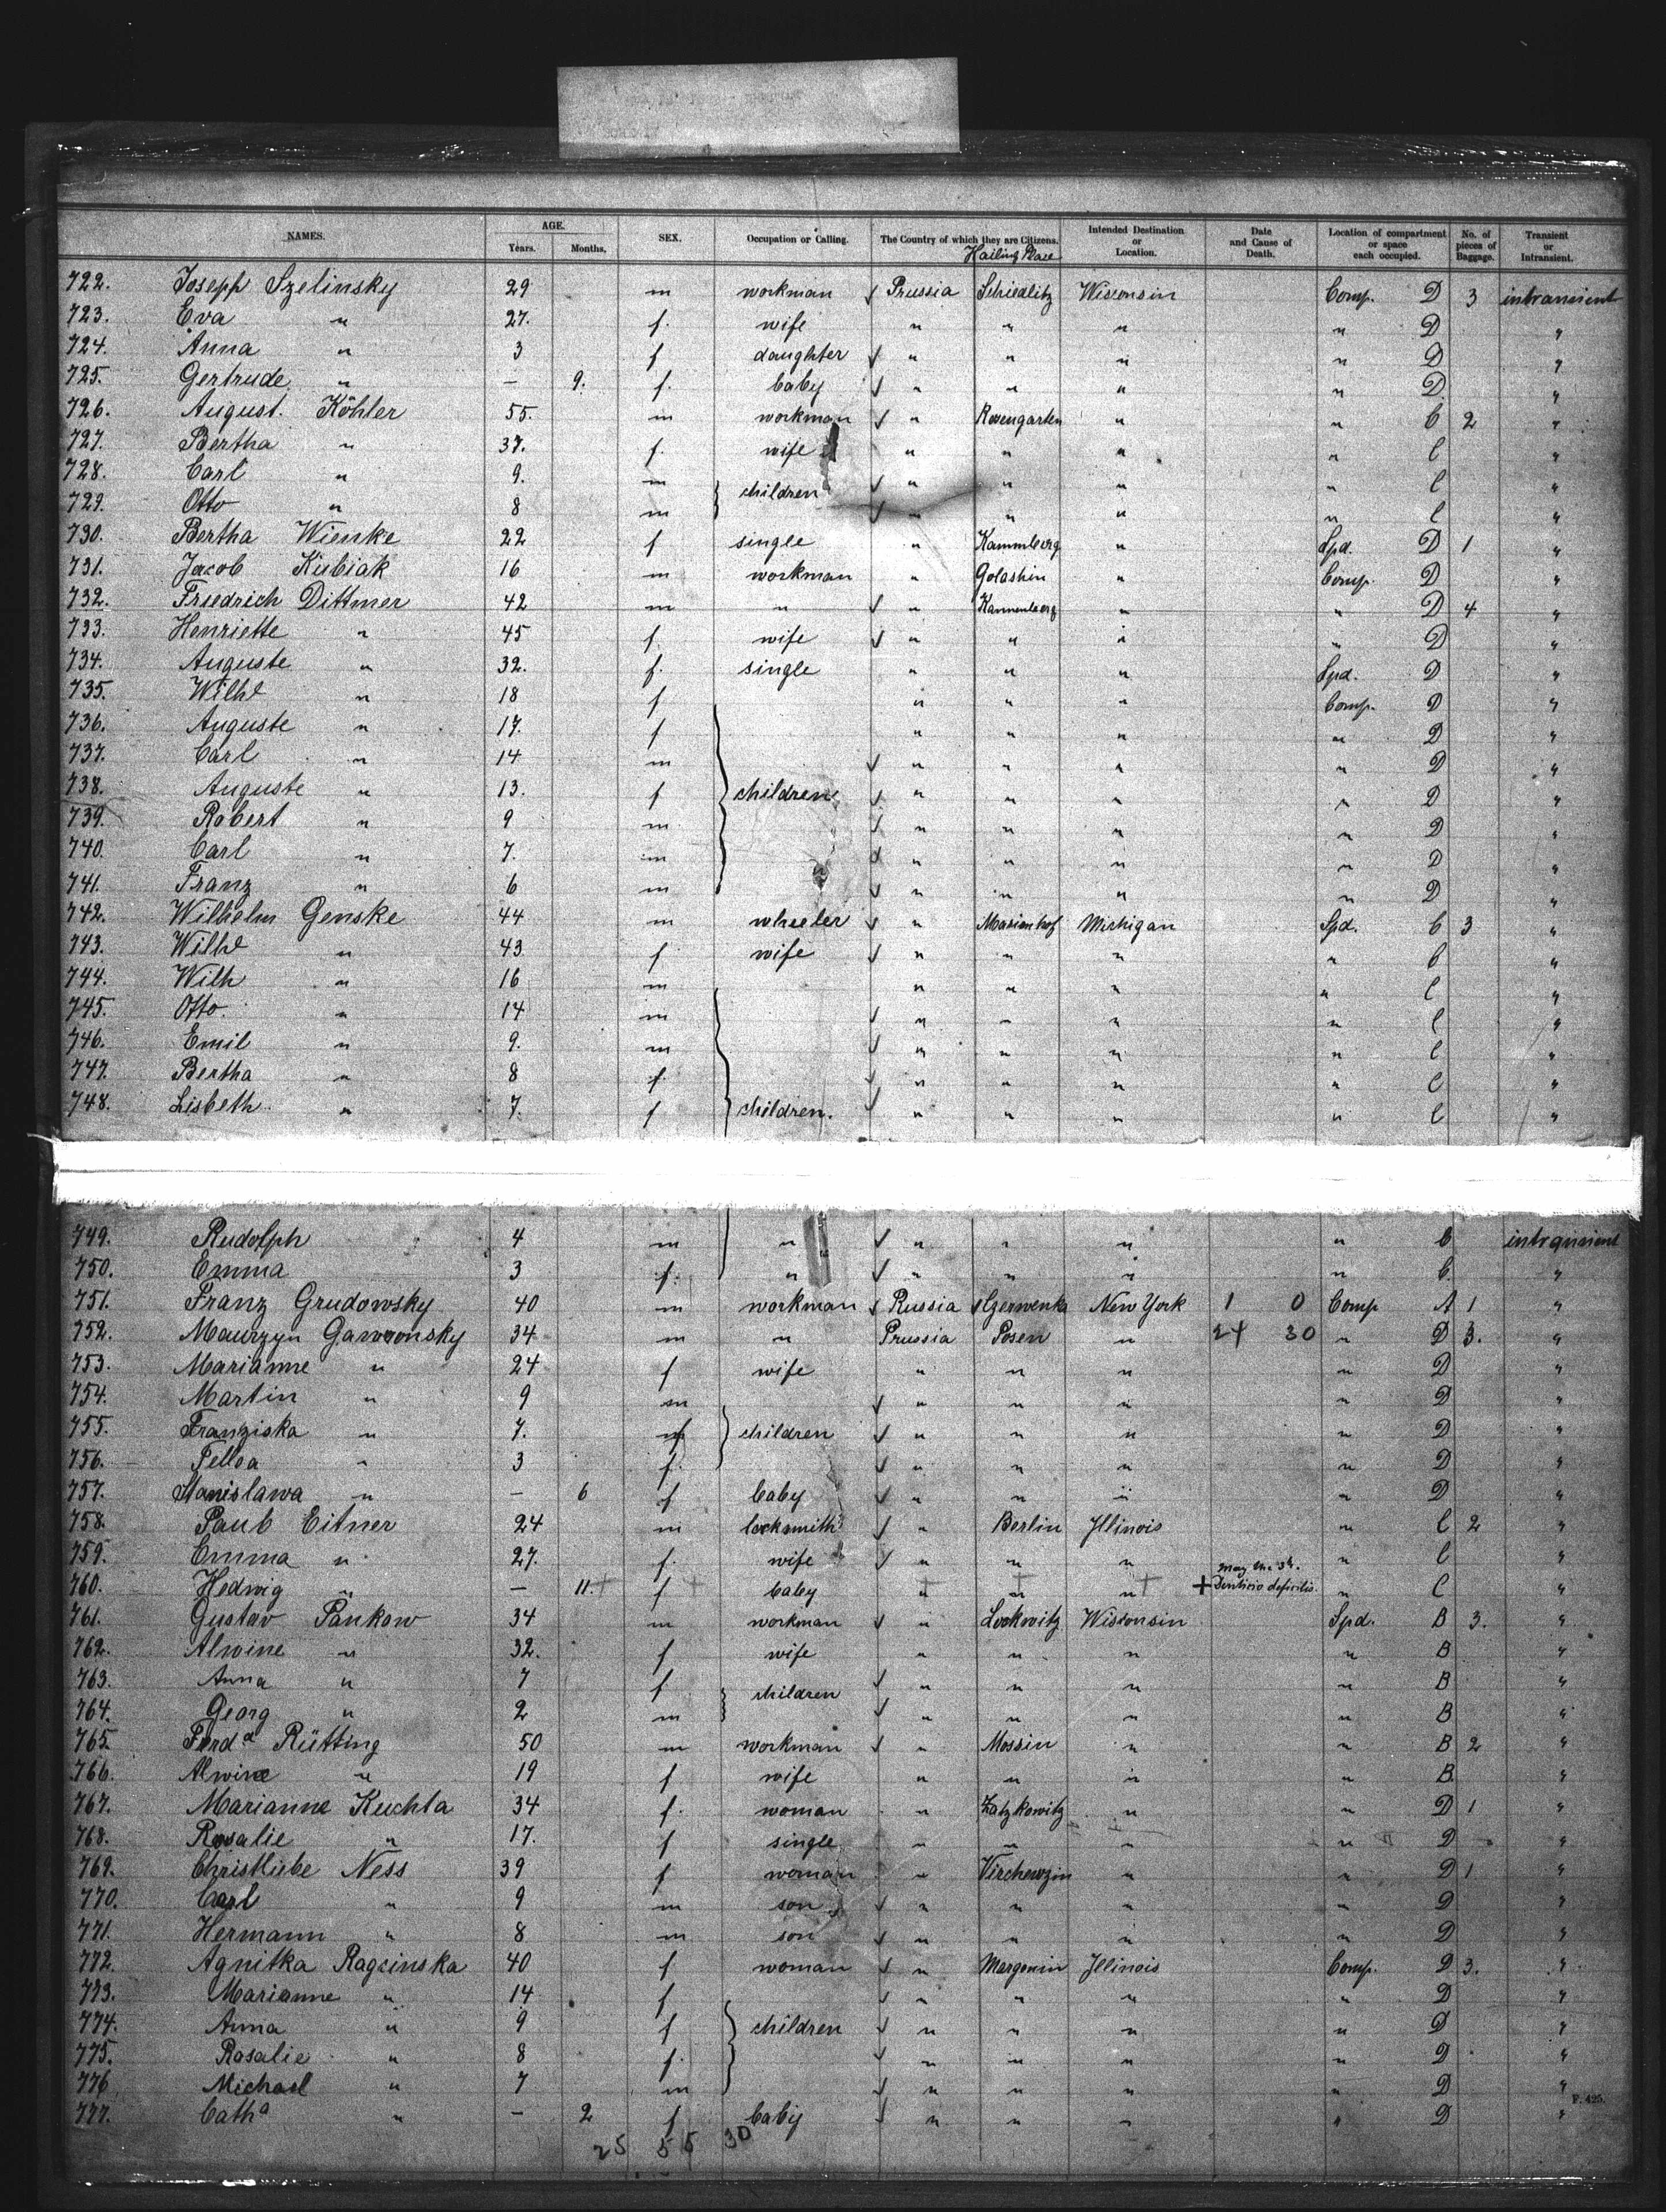 NAMES. AGE. Years. Months. SEX. Occupation or Calling. The Country of which they are Citizens. Hailing Place Intended Destination or Location. Date and Cause of Death. Location of compartment or space each occupied. No. of pieces of Baggage. Transient or Intransient.
722. Joseph Szelinsky 29 m workman Prussia Schidlitz Wisconsin Comp. D 3 intransient
723. Eva " 27. f. wife " " " " D "
724. Anna " 3 f daughter " " " " D "
725. Gertrude " — 9. f. baby " " " " D "
726. August. Köhler 55. m workman " Rosengarten " " C 2 "
727. Bertha " 37. f. wife " " " " C "
728. Carl " 9. m children " " " " C "
729. Otto " 8 m " " " " C "
730. Bertha Wienke 22 f single " " Spd. D 1 "
731. Jacob Kubiak 16 m workman " Golashin " Comp. D "
732. Friedrich Dittmer 42 m " " Kannenberg " " D 4 "
733. Henriette " 45 f. wife " " " " D "
734. Auguste " 32. f. single " " " Spd. D "
735. Wilhe " 18 f " " " Comp. D "
736. Auguste " 17. f " " " " D "
737. Carl " 14 m " " " " D "
738. Auguste " 13. f children " " " " D "
739. Robert " 9 m " " " " D "
740. Carl " 7. m " " " " D "
741. Franz " 6 m " " " " D "
742. Wilhelm Genske 44 m wheeler " Marienhof Michigan Spd. C 3 "
743. Wilhe " 43 f wife " " " " C "
744. Wilh " 16 m " " " " C "
745. Otto " 14 m " " " " C "
746. Emil " 9. m " " " " C "
747. Bertha " 8 f. " " " " C "
748. Lisbeth " 7. f children. " " " " C "
749. Rudolph 4 m " " " " " C intransient
750. Emma 3 f. " " " " " C. "
751. Franz Grudowsky 40 m workman Russia New York 1 0 Comp A 1 "
752. Gawronsky 34 m " Prussia Posen " 24 30 " D 3. "
753. Marianne " 24 f wife " " " " D "
754. Martin " 9 m " " " " D "
755. Franziska " 7. f children " " " " D "
756. " 3 f. " " " " D "
757. Stanislawa " — 6 f baby " " " " D "
758. Paul Eitner 24 m locksmith " Berlin Illinois " C 2 "
759. Emma " 27. f. wife " " " " C "
760. Hedwig " — 11. + f baby " " " May the 5th. + Dentitio deficilis. " C "
761. Gustav Pankow 34 m workman " Wisconsin Spd. B 3. "
762. Alwine " 32. f wife " " " " B "
763. Anna " 7 f children " " " " B "
764. Georg " 2 m " " " " B "
765. Ferdd Rütting 50 m workman " Mossin " " B 2 "
766. Alwine " 19 f wife " " " " B. "
767. Marianne Kuchta 34 f. woman " Zatzkowitz " " D 1 "
768. Rosalie " 17. f single " " " " D "
769. Christliebe Ness 39 f woman " " " D 1 "
770. Carl " 9 m son " " " " D "
771. Hermann " 8 m son " " " " D "
772. Agnitka Ragcinska 40 f woman " Margonin Illinois Comp. D 3. "
773. Marianne " 14 f " " " " D "
774. Anna " 9 f children " " " " D "
775. Rosalie " 8 f. " " " " D "
776 Michael " 7 m " " " " D "
777. Catha " — 2 f baby " " " " D "
F. 425.
25 55 30